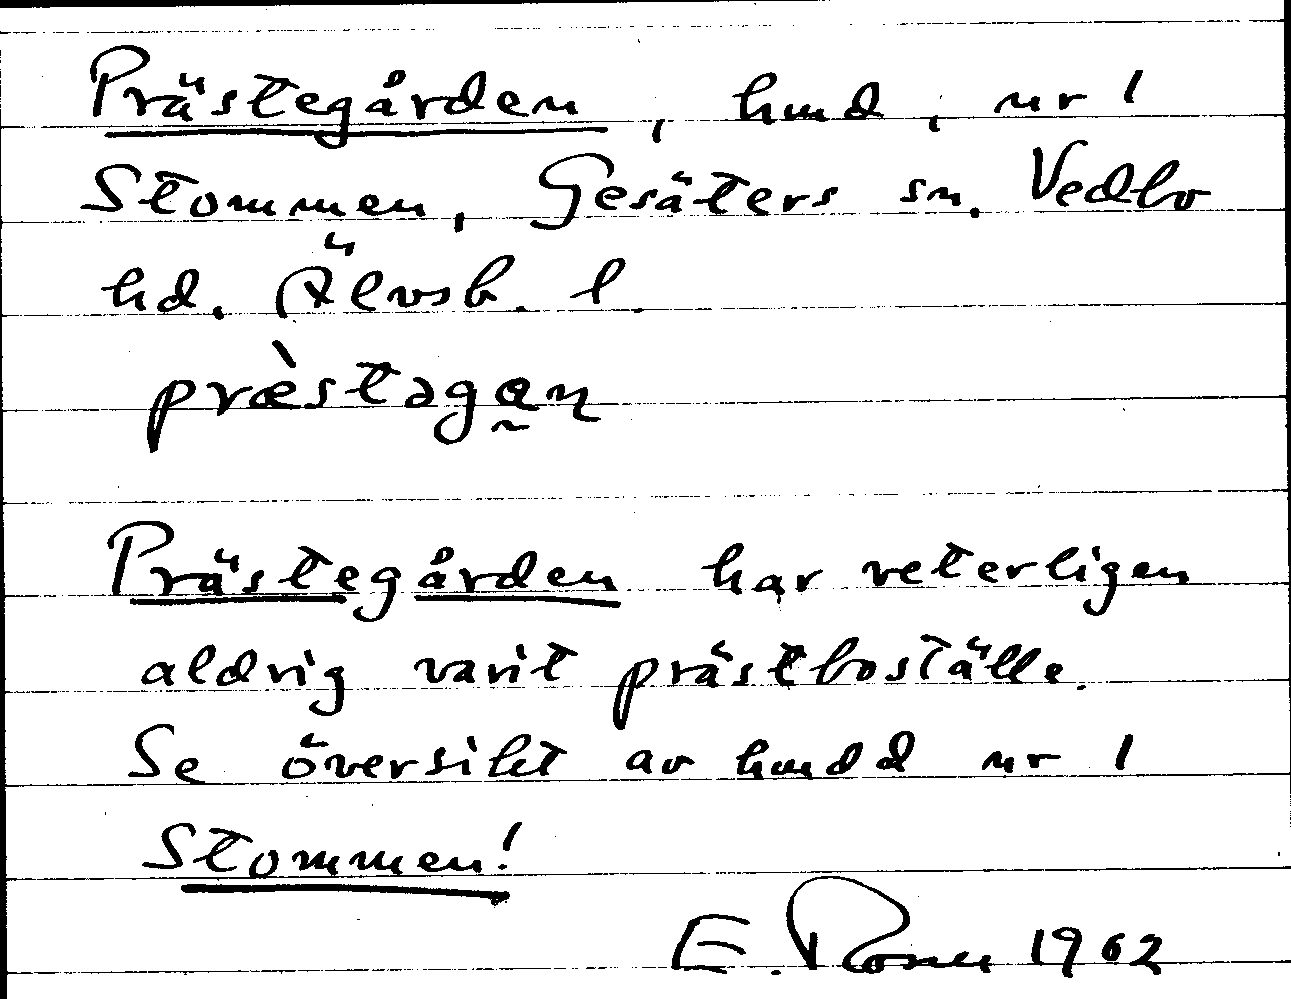 Prästegården, hmd, nr 1
Stommen, Gesäters sn. Vedbo
hd. Älvsb. l.
prὲstagan̰
Prästegården har veterligen
aldrig varit prästboställe.
Se översikt av hmdd nr 1
Stommen!
E. Rosén 1962